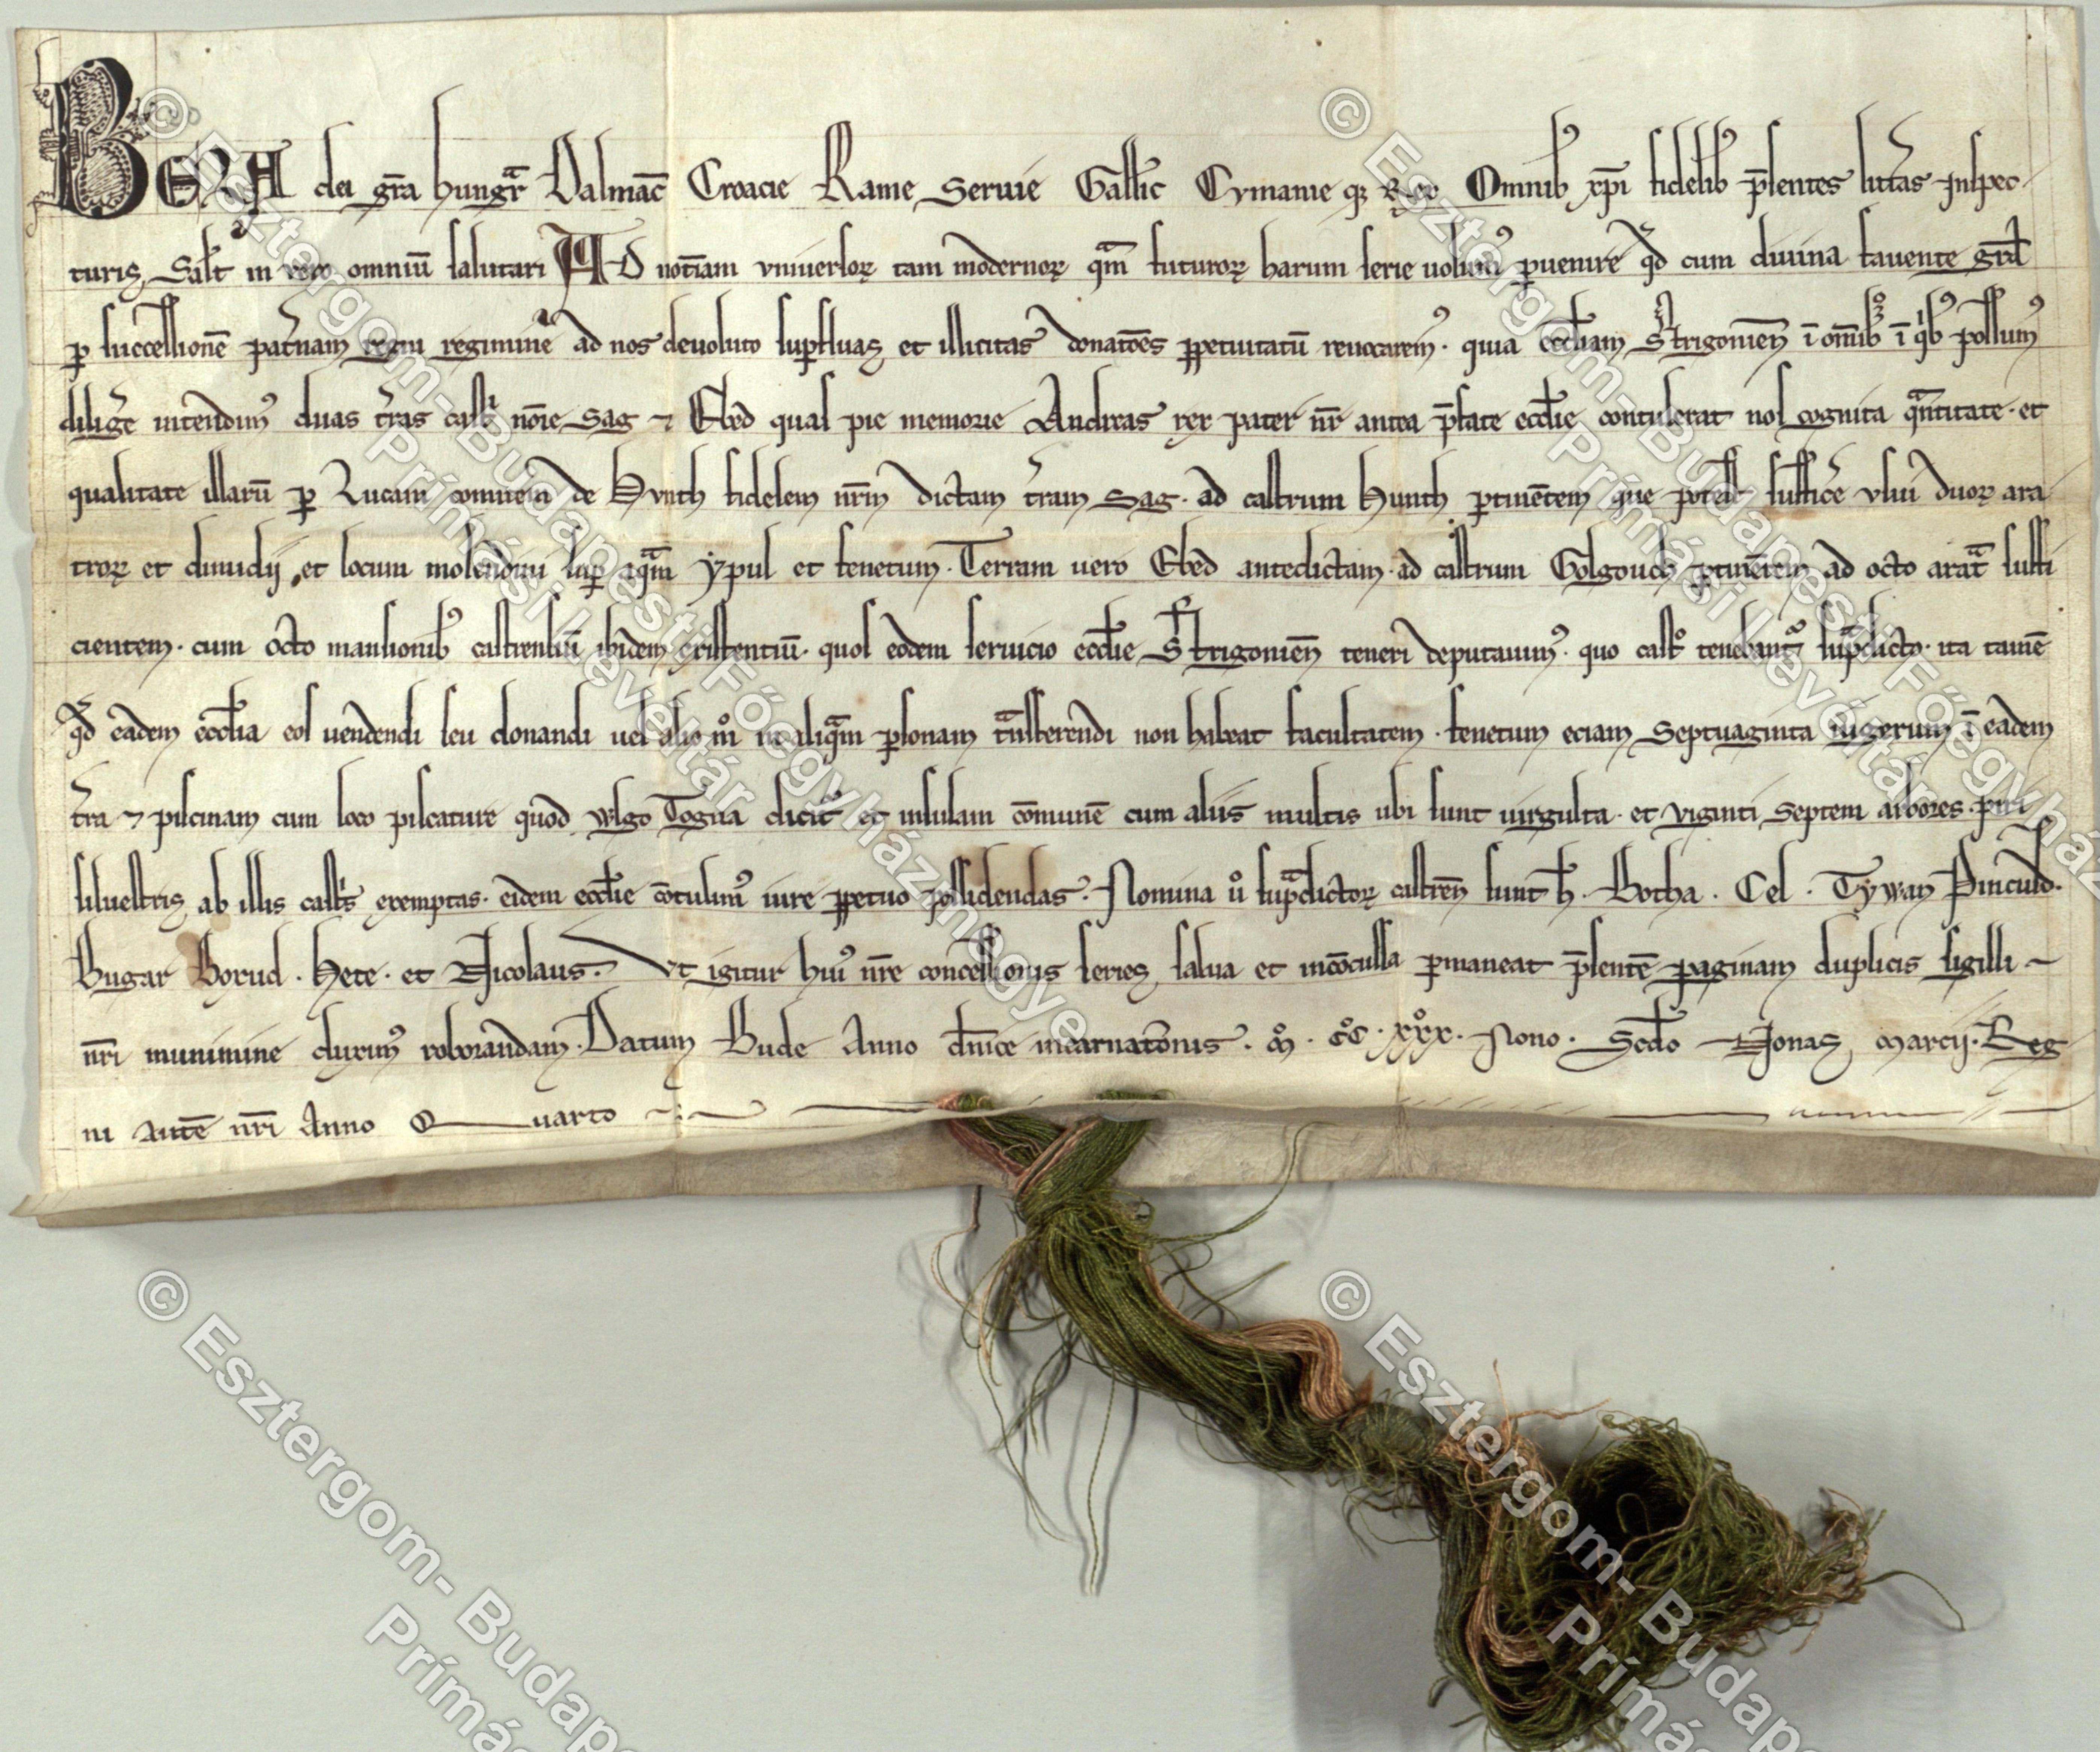 BELA dei gr̄a hungr̄ Dalmac̄ Croacie Rame Seruie Gallic̄ Cymanie q; Rex Omnib᾿ xp̄i fidelib᾿ p̄sentes litt̄as inspec
turis Salt̄ in vero omniū salutari AD notiā̄m vniuersoꝝ tam modernoꝝ qm̄ futuroꝝ harum serie uolum᾿ ꝑuenire qd̄ cum diuina fauente gr̄a
ꝑ successionē pat̄nam regni regimine ad nos deuoluto suꝑfluas et illicitas donatōes ꝑpetuitatū reuocarem᾿. quia eccl̄iam Strigonien̄ ī om̄ib᾿ ī qib᾿ possum᾿
diliḡe intendim᾿ duas t̄ras cast̄ nōie Sag ⁊ Ebed quas pie memorie Andreas rex pater nr̄ antea p̄fate eccl̄ie contulerat nos cognita qn̄titate. et
qualitate illarū ꝑ Lucam comitem de Hvnth fidelem nr̄m dictam t̄ram Sag. ad castrum hunth ꝑtinētem que potest suffic̄e vsui duoꝝ ara
troꝝ et dimidij, et locum molendini suꝑ aqm̄ ypul et fenetum. Terram uero Ebed antedictam. ad castrum Golgouch ꝑtinētem ad octo arat̄ suffi
cientem. cum octo mansionib᾿ castrensiū ibidem existentiū. quos eodem seruicio eccl̄ie Strigonien̄ teneri deputauim᾿. quo cast᾿ tenebant᾿ sup̄dicto. ita tamē
qd̄ eadem eccl̄ia eos uendendi seu donandi uel alio m̊ in aliqm̄ ꝑsonam tn̄sferendi non habeat facultatem. fenetum eciam Septuaginta iugerum ī eadem
t̄ra ⁊ piscinam cum loco piscature quod wlgo Togna dicit᾿ et insulam cōmunē cum aliis multis ubi sunt uirgulta. et viginti Septem arbores. piri
siluestris ab illis cast̄s exemptas. eidem eccl̄ie cōtulim᾿ iure ꝑpetuo possidendas. Nomina ů sup̄dictoꝝ castren̄ sunt h̄. Botha. Cel. Tywan Pincusd.
Bugar Borud. Hete. et Nicolaus. Vt igitur hui᾿ nr̄e concessionis series salua et incōcussa ꝑmaneat p̄sentē paginam duplicis sigilli
nr̄i munimine duxim᾿ roborandam. Datum Bude Anno dn̄ice incarnatōnis. M̊. C̊C. XX̊X. Nono. Scd̄o Nonas marcij. Reg
ni autē nr̄i Anno Quarto
© Esztergom- Budapesti Főegyházmegye
Prímási Levéltár
© Esztergom- Budapesti Főegyház
Prímási Levéltár
© Esztergom- Budap
Prímás
© Esztergom- Budap
Prímás